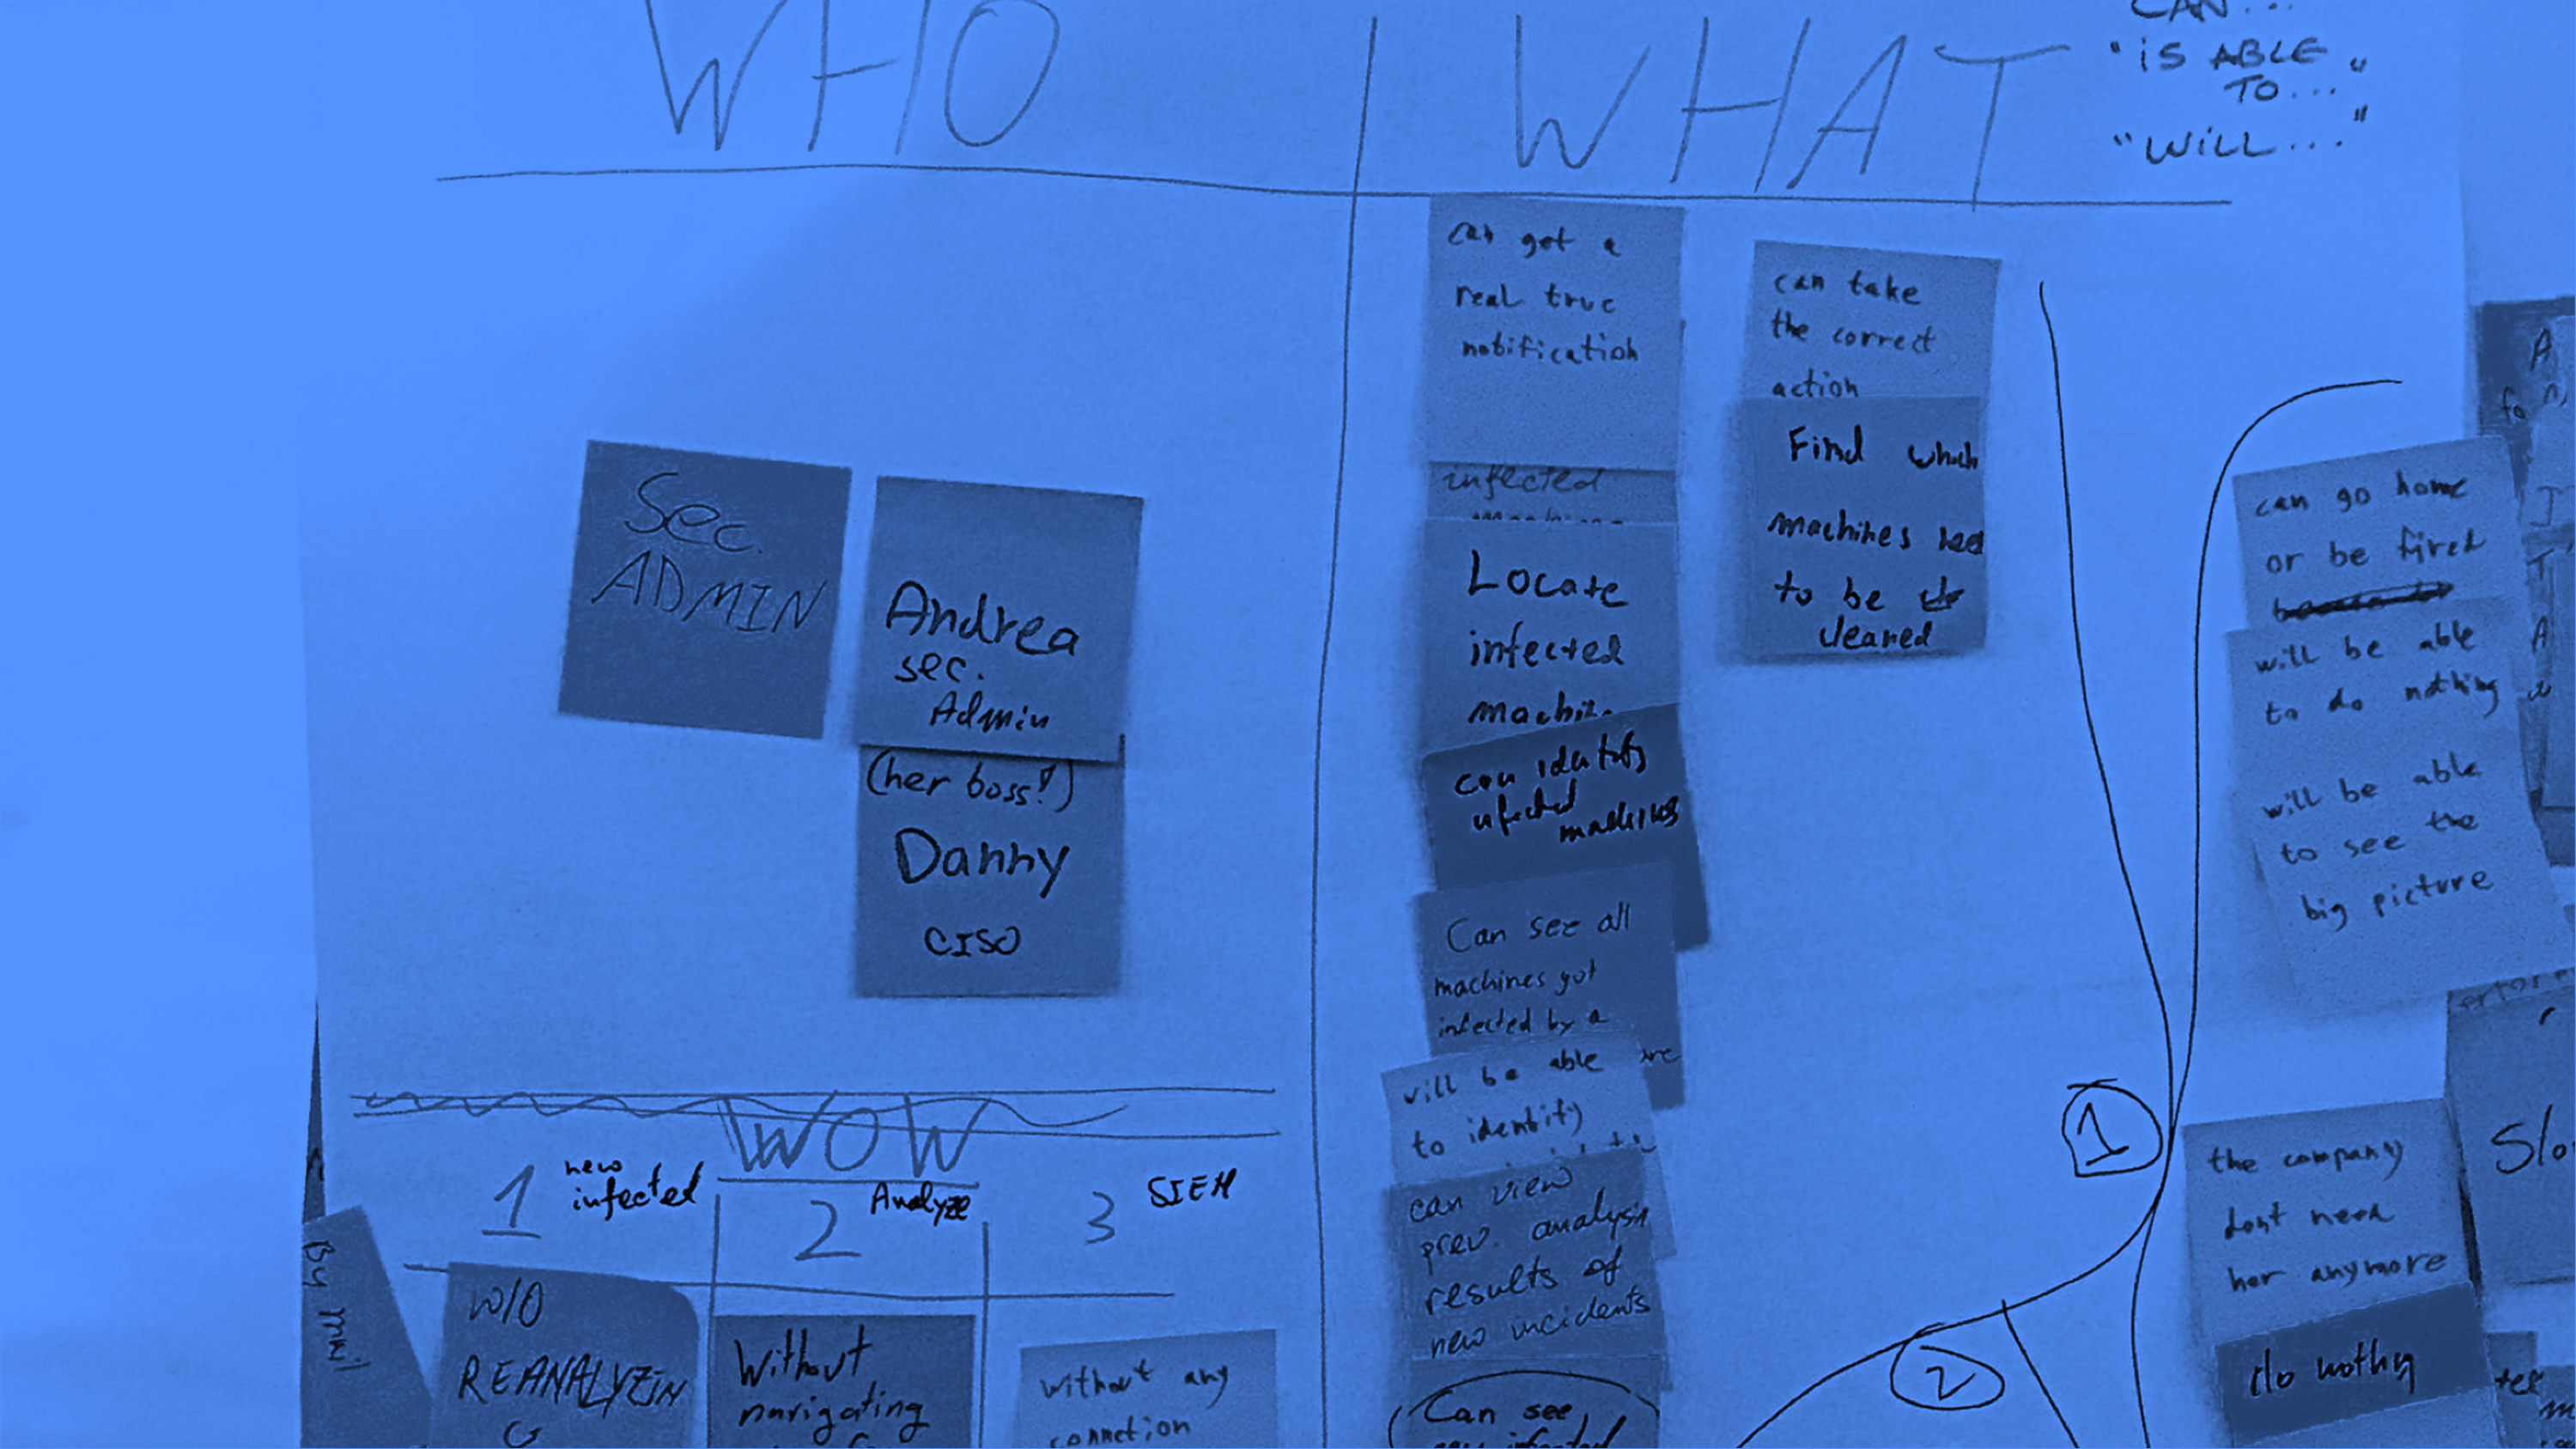 WHO
WHAT
CAN...
"IS ABLE
TO..."
"WILL..."
Sec.
ADMIN
Andrea
sec.
Admin
(her boss!)
Danny
CISO
can get a
real true
notification
infected
Locate
infected
can identify
infected
machines
Can see all
machines got
infected by a
will be able
to identify
can view
prev. analysis
results of
new incidents
Can see
can take
the correct
action
Find which
machines need
to be
cleaned
1
2
can go home
or be fired
will be able
to do nothing
will be able
to see the
big picture
the company
dont need
her anymore
do nothing
Slo
WOW
1 new
infected
2 Analyze
3 SIEM
By mail
W/O
REANALYZIN
Without
navigating
without any